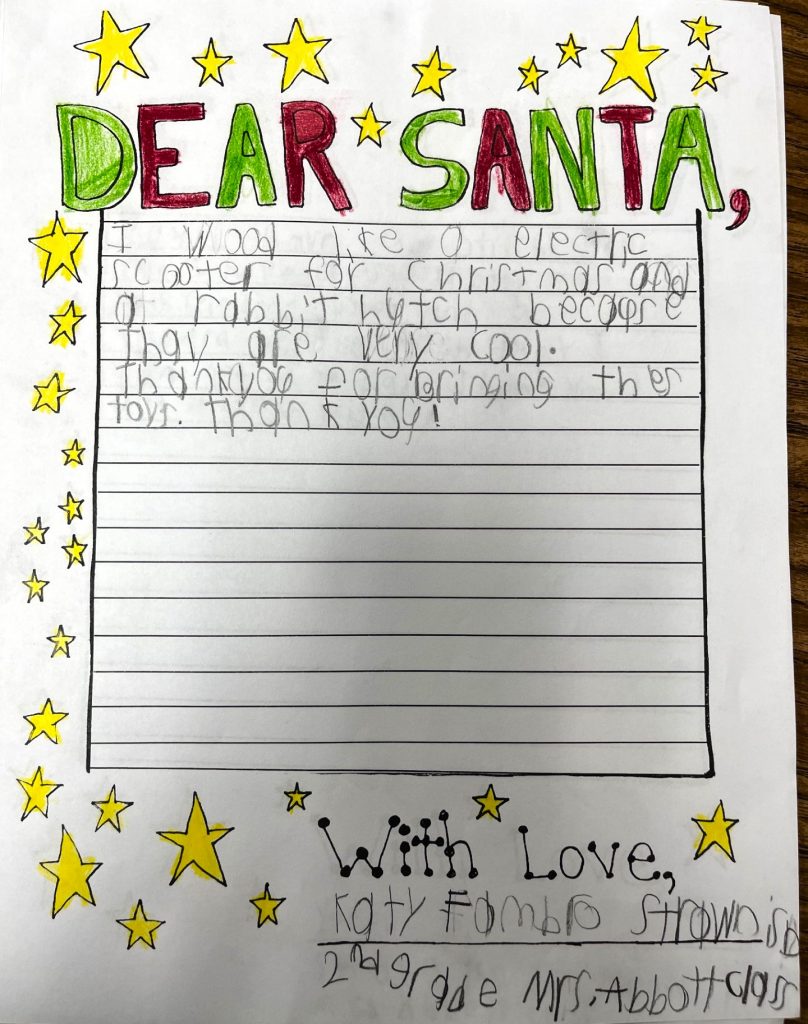 DEAR SANTA,
I wood like a electric
scooter for Christmas and
a rabbit hutch because
Thay are very cool.
Thankyou for bringing thes
toys. Thank you!
With Love,
Katy Fambro Strawn isD
2nd grade Mrs. Abbott class